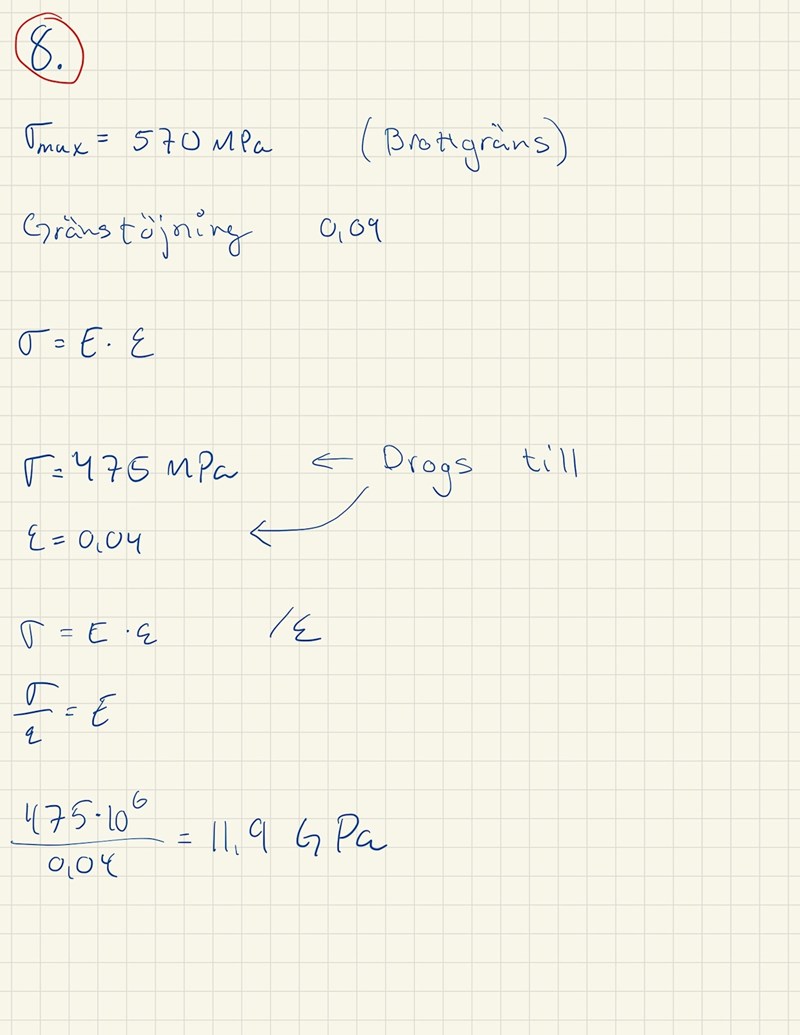 8.
σmax = 570 MPa (Brottgräns)
Gränstöjning 0,09
σ = E · ε
σ = 475 MPa ← Drogs till
ε = 0,04 ←
σ = E · ε /ε
σ/ε = E
475·10⁶/0,04 = 11,9 GPa